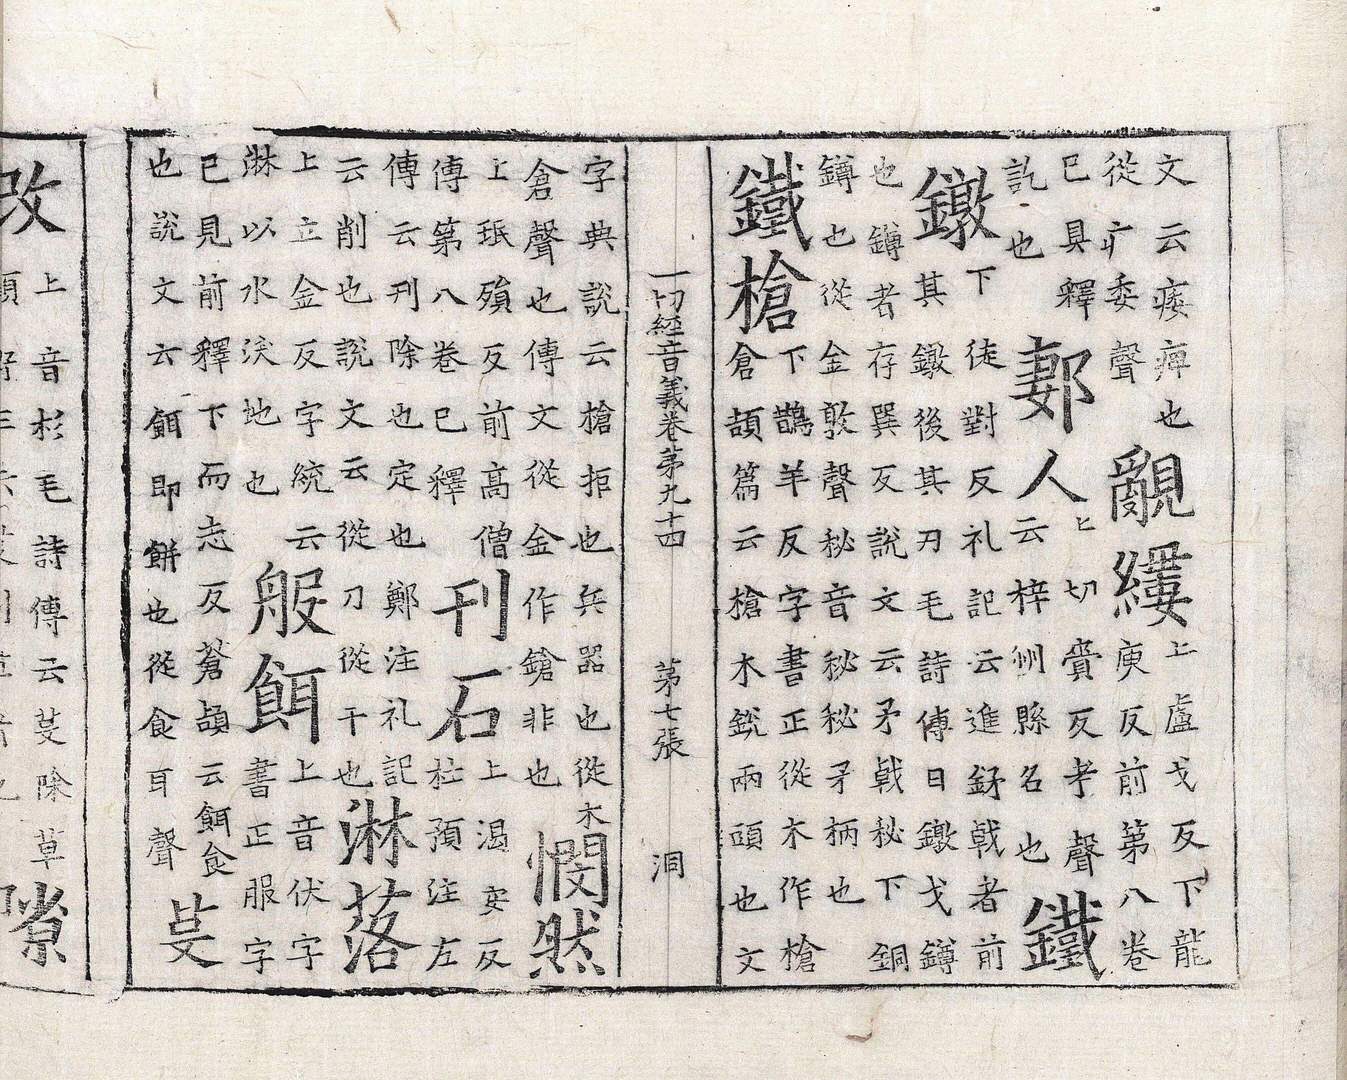 文云痿痺也
從疒委聲
覶縷
上盧戈反下龍
庾反前第八卷
已具釋
訖也
郪人
上切賷反考聲
云梓州縣名也
鐵
鐓
下徒對反礼記云進釨戟者前
其鐓後其刃毛詩傳曰鐓戈鐏
也鐏者存巽反說文云矛戟秘下銅
鐏也從金敦聲秘音秘秘矛柄也
鐵槍
下鵲羊反字書正從木作槍
倉頡篇云槍木銳兩頭也文
一切經音義卷第九十四
第七張
洞
字典說云槍拒也兵器也從木
倉聲也傳文從金作鎗非也
憫然
上珉殞反前高僧
傳第八卷已釋
刊石
上渴安反
杜預注左
傳云刊除也定也鄭注礼記
云削也說文云從刀從干也
淋落
上立金反字統云
淋以水沃地也
般餌
上音伏字
書正服字
已見前釋下而志反蒼頡云餌食
也說文云餌即餅也從食耳聲
芟
改
上音杉毛詩傳云芟除草